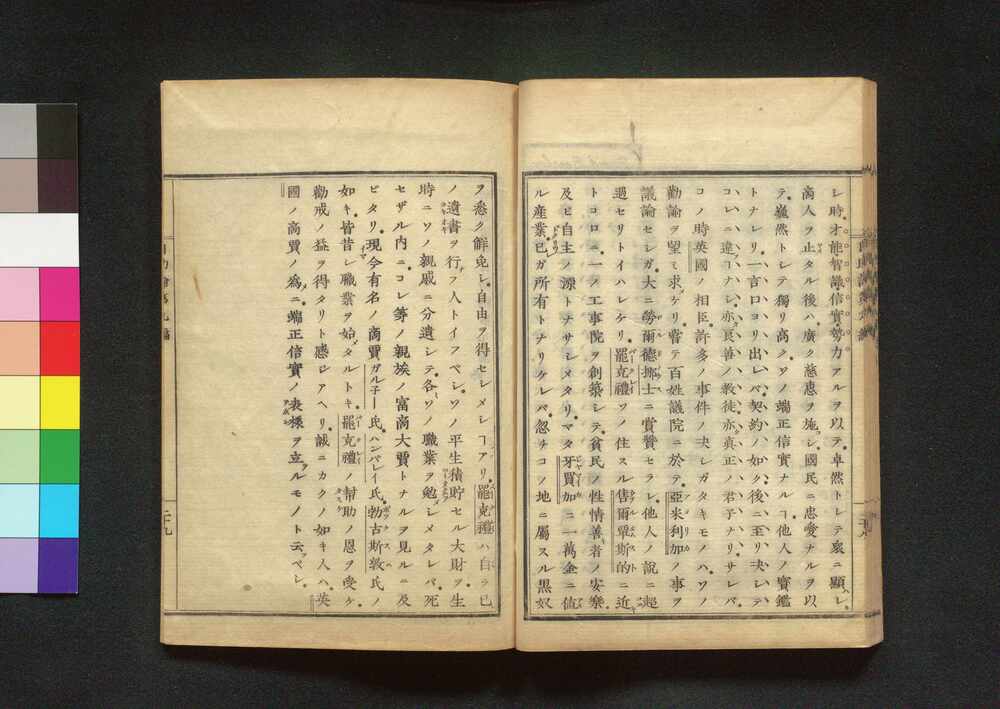 レ時才能智識信實勢力アルヲ以テ卓然トシテ衆ニ顯ハレ
商人ヲ止タル後ハ廣ク慈惠ヲ施シ國民ニ忠愛ナルヲ以
テ巍然トシテ獨リ高クソノ端正信實ナルヿ他人ノ寳鑑
トナレリ一言口ヨリ出レバ契約ノ如ク後ニ至リ決シテ
コレニ違ヿナシ亦良善ノ教徒亦眞正ノ君子ナリサレバ
コノ時英國ノ相臣許多ノ事件ノ決シガタキモノハソノ
勸諭ヲ望ミ求ケリ嘗テ百姓議院ニ於テ亞米利加ノ事ヲ
議論セシガ大ニ勞爾德挪士ニ賞贊セラレ他人ノ說ニ起
過セリトイハレケリ罷克禮ソノ住スル售爾覃斯的ニ近
トコロニ一ノ工事院ヲ創築シテ貧民ノ性情善者ノ安樂
及ビ自主ノ源トナサシメタリマタ牙買加ニ一萬金ニ値
ル産業已ガ所有トナリケレバ忽チコノ地ニ屬スル黒奴
ヲ悉ク解免シ自由ヲ得セシメシヿアリ罷克禮ハ自ラ已
ノ遺書ヲ行フ人トイフベシソノ平生積貯セル大財ヲ生
時ニソノ親戚ニ分遺シテ各ソノ職業ヲ勉シメタレバ死
セザル内ニコレ等ノ親族ノ富商大賈トナルヲ見ルニ及
ビタリ現今有名ノ商賈ガル子ー氏ハンバレイ氏勃古斯敦氏ノ
如キ皆昔シ職業ヲ始メタルトキ罷克禮ノ幇助ノ恩ヲ受ケ
勸戒ノ益ヲ得タリト感ジアヘリ誠ニカクノ如キ人ハ英
國ノ商賈ノ爲ニ端正信實ノ表樣ヲ立ツルモノト云ベシ
二十九